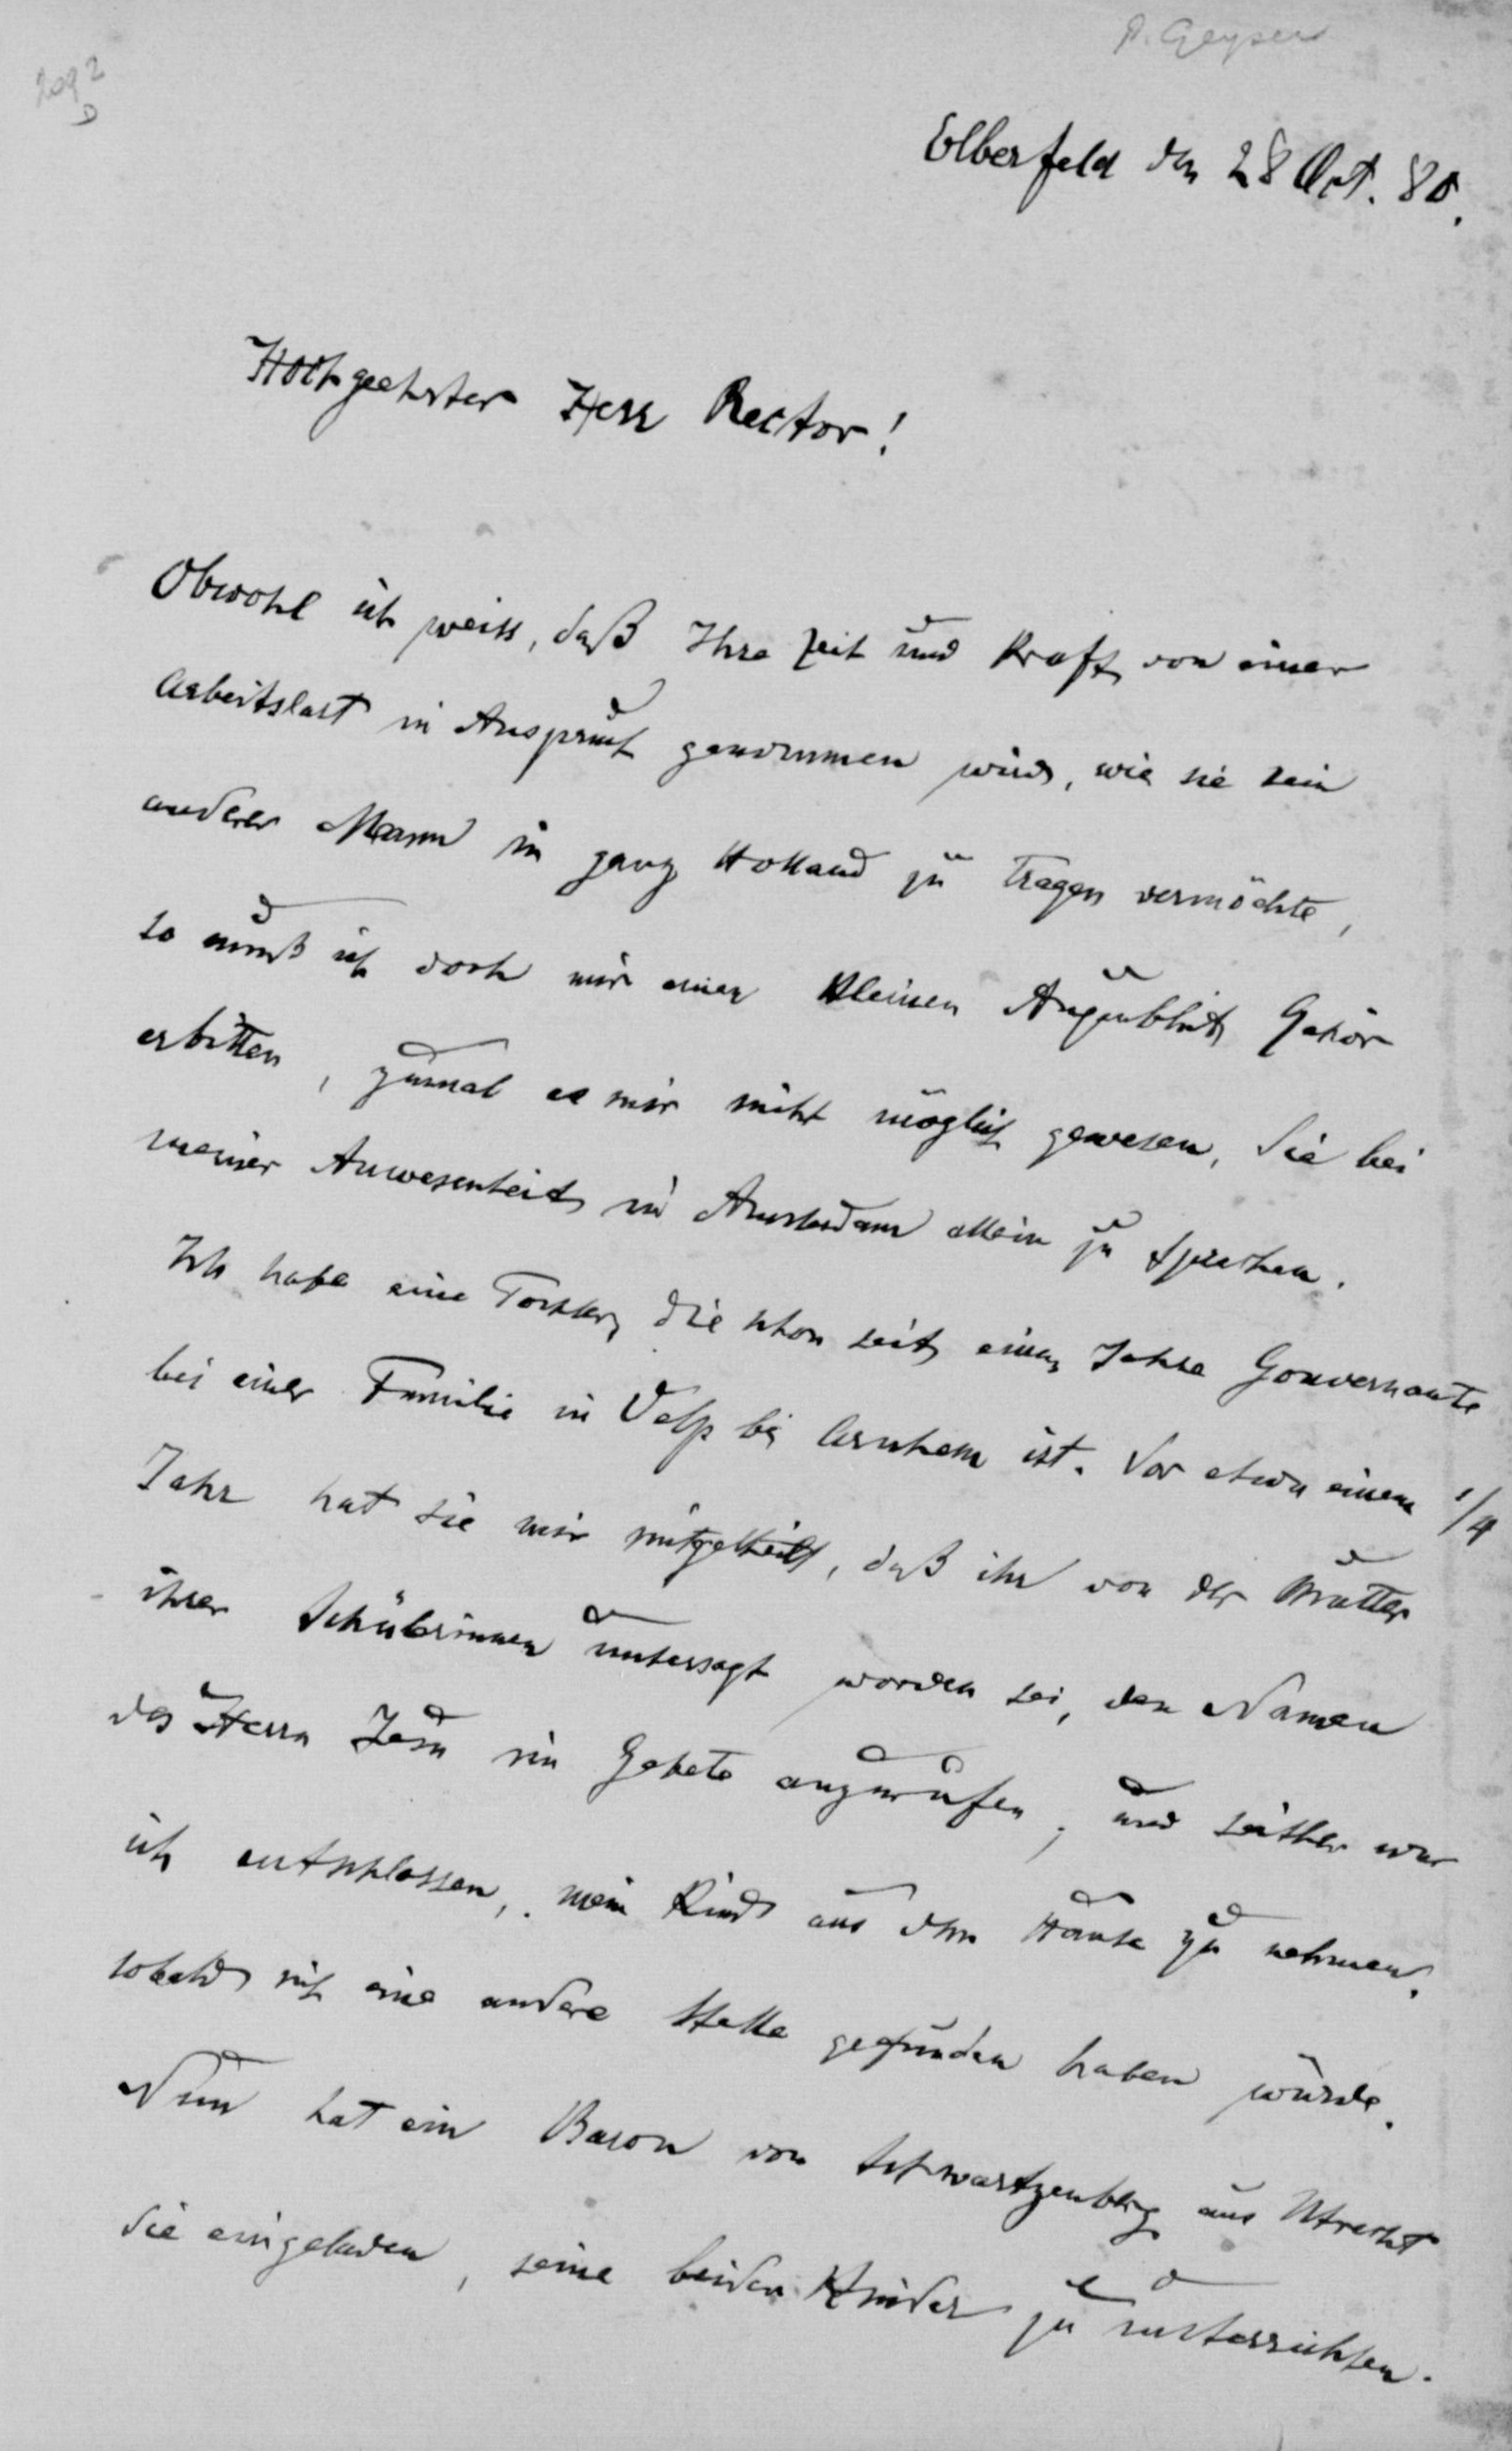 P. Geyser
2092
D
Elberfeld den 28 Oct. 80.
Hochgeehrter Herr Rector!
Obwohl ich weiss, daß Ihre Zeit und Kraft von einer
Arbeitslast in Anspruch genommen wird, wie sie kein
anderer Mann in ganz Holland zu tragen vermöchte,
so muß ich doch mir einen kleinen Augenblick Gehör
erbitten, zumal es mir nicht möglich gewesen, Sie bei
meiner Anwesenheit in Amsterdam allein zu sprechen.
Ich habe eine Tochter, die schon seit einem Jahre Gouvernante
bei einer Familie in Velp bei Arnhem ist. Vor etwa einem 1/4
Jahr hat sie mir mitgetheilt, daß ihr von der Mutter
ihrer Schülerinnen untersagt worden sei, den Namen
des Herrn Jesu im Gebete anzurufen, und seither war
ich entschlossen, mein Kind aus dem Hause zu nehmen,
sobald ich eine andere Stelle gefunden haben würde.
Nun hat ein Baron von Schwartzenberg aus Utrecht
sie eingeladen, seine beiden Kinder zu unterrichten.